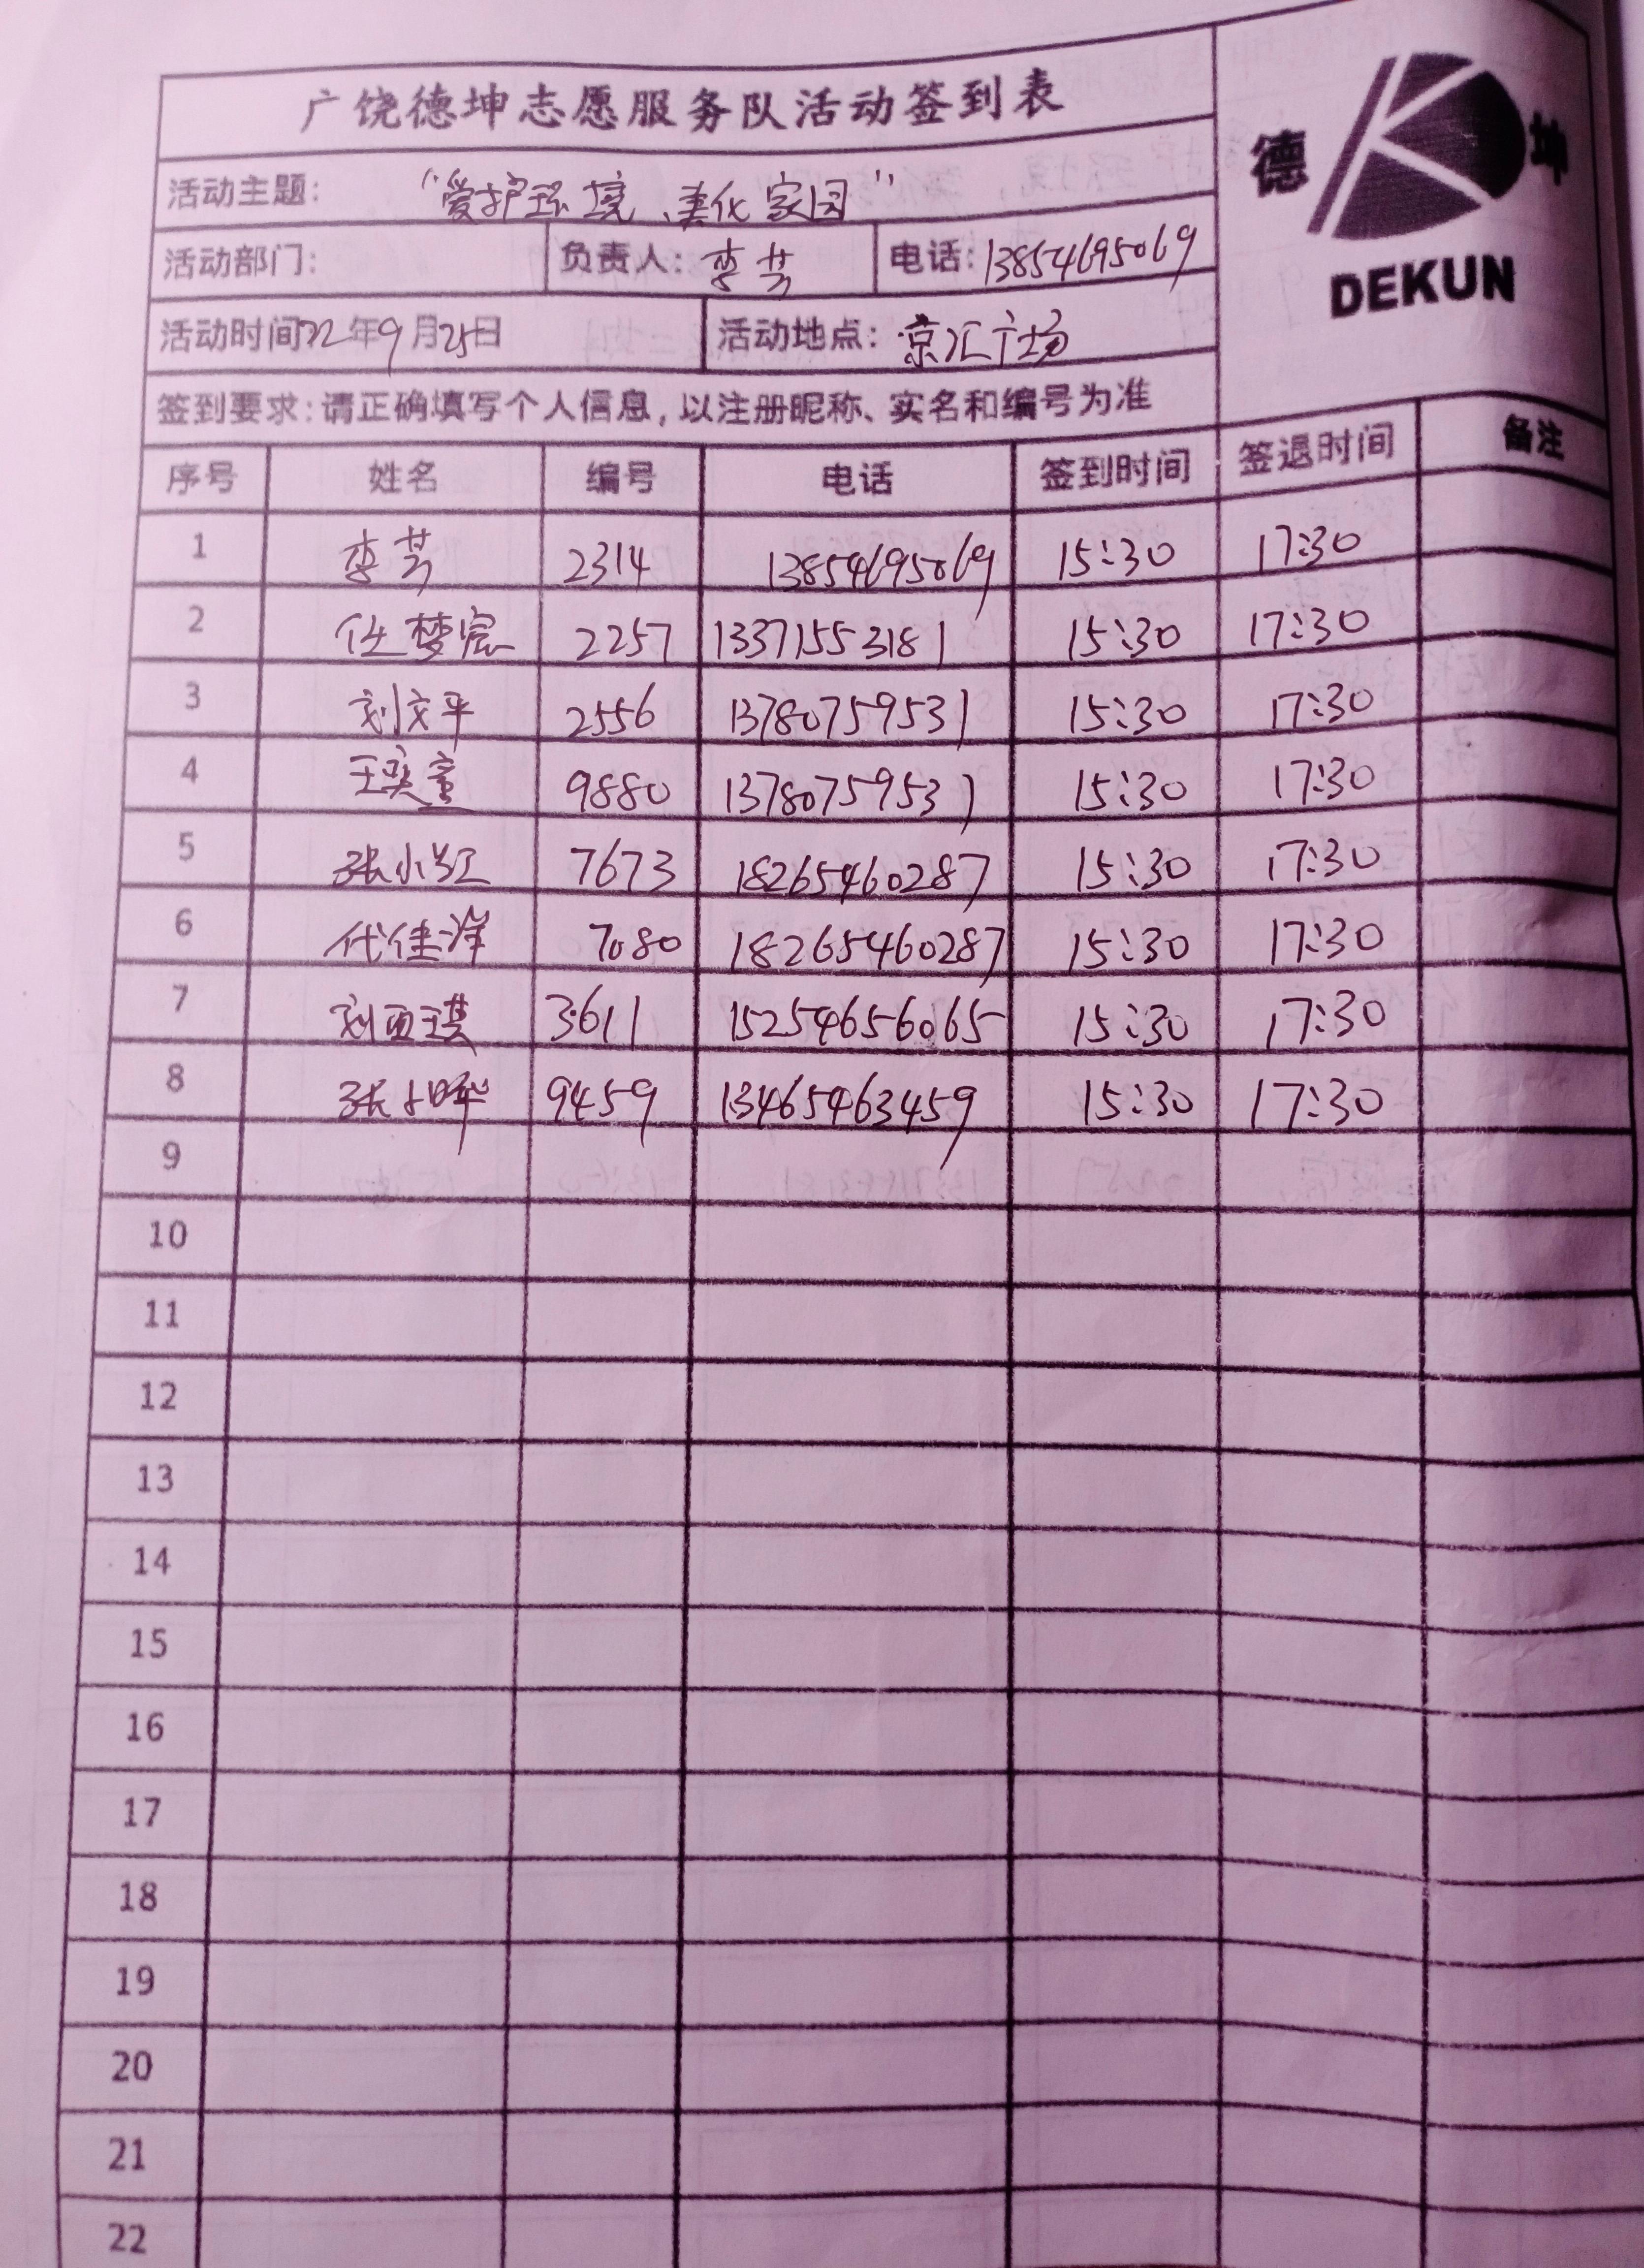 广饶德坤志愿服务队活动签到表
德 坤
DEKUN
活动主题: “爱护环境、美化家园”
活动部门: 负责人: 李芳 电话: 13854695069
活动时间22年9月25日 活动地点: 京汇广场
签到要求: 请正确填写个人信息, 以注册昵称、实名和编号为准
序号 姓名 编号 电话 签到时间 签退时间 备注
1 李芳 2314 13854695069 15:30 17:30
2 任梦宸 2257 13371553181 15:30 17:30
3 刘文平 2556 13780759531 15:30 17:30
4 王奕童 9880 13780759531 15:30 17:30
5 张小红 7673 18265460287 15:30 17:30
6 代佳洋 7080 18265460287 15:30 17:30
7 刘亚琪 3611 15254656065 15:30 17:30
8 张 9459 13465463459 15:30 17:30
9
10
11
12
13
14
15
16
17
18
19
20
21
22